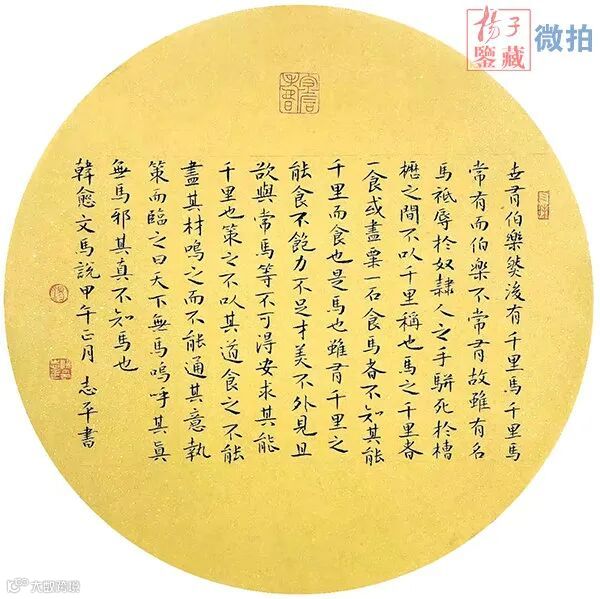 世有伯樂然後有千里馬千里馬
常有而伯樂不常有故雖有名
馬祗辱於奴隸人之手駢死於槽
櫪之間不以千里稱也馬之千里者
一食或盡粟一石食馬者不知其能
千里而食也是馬也雖有千里之
能食不飽力不足才美不外見且
欲與常馬等不可得安求其能
千里也策之不以其道食之不能
盡其材鳴之而不能通其意執
策而臨之曰天下無馬嗚呼其眞
無馬邪其真不知馬也
韓愈文馬說甲午正月 志平書
揚子
鑒藏
微拍
大数跨境